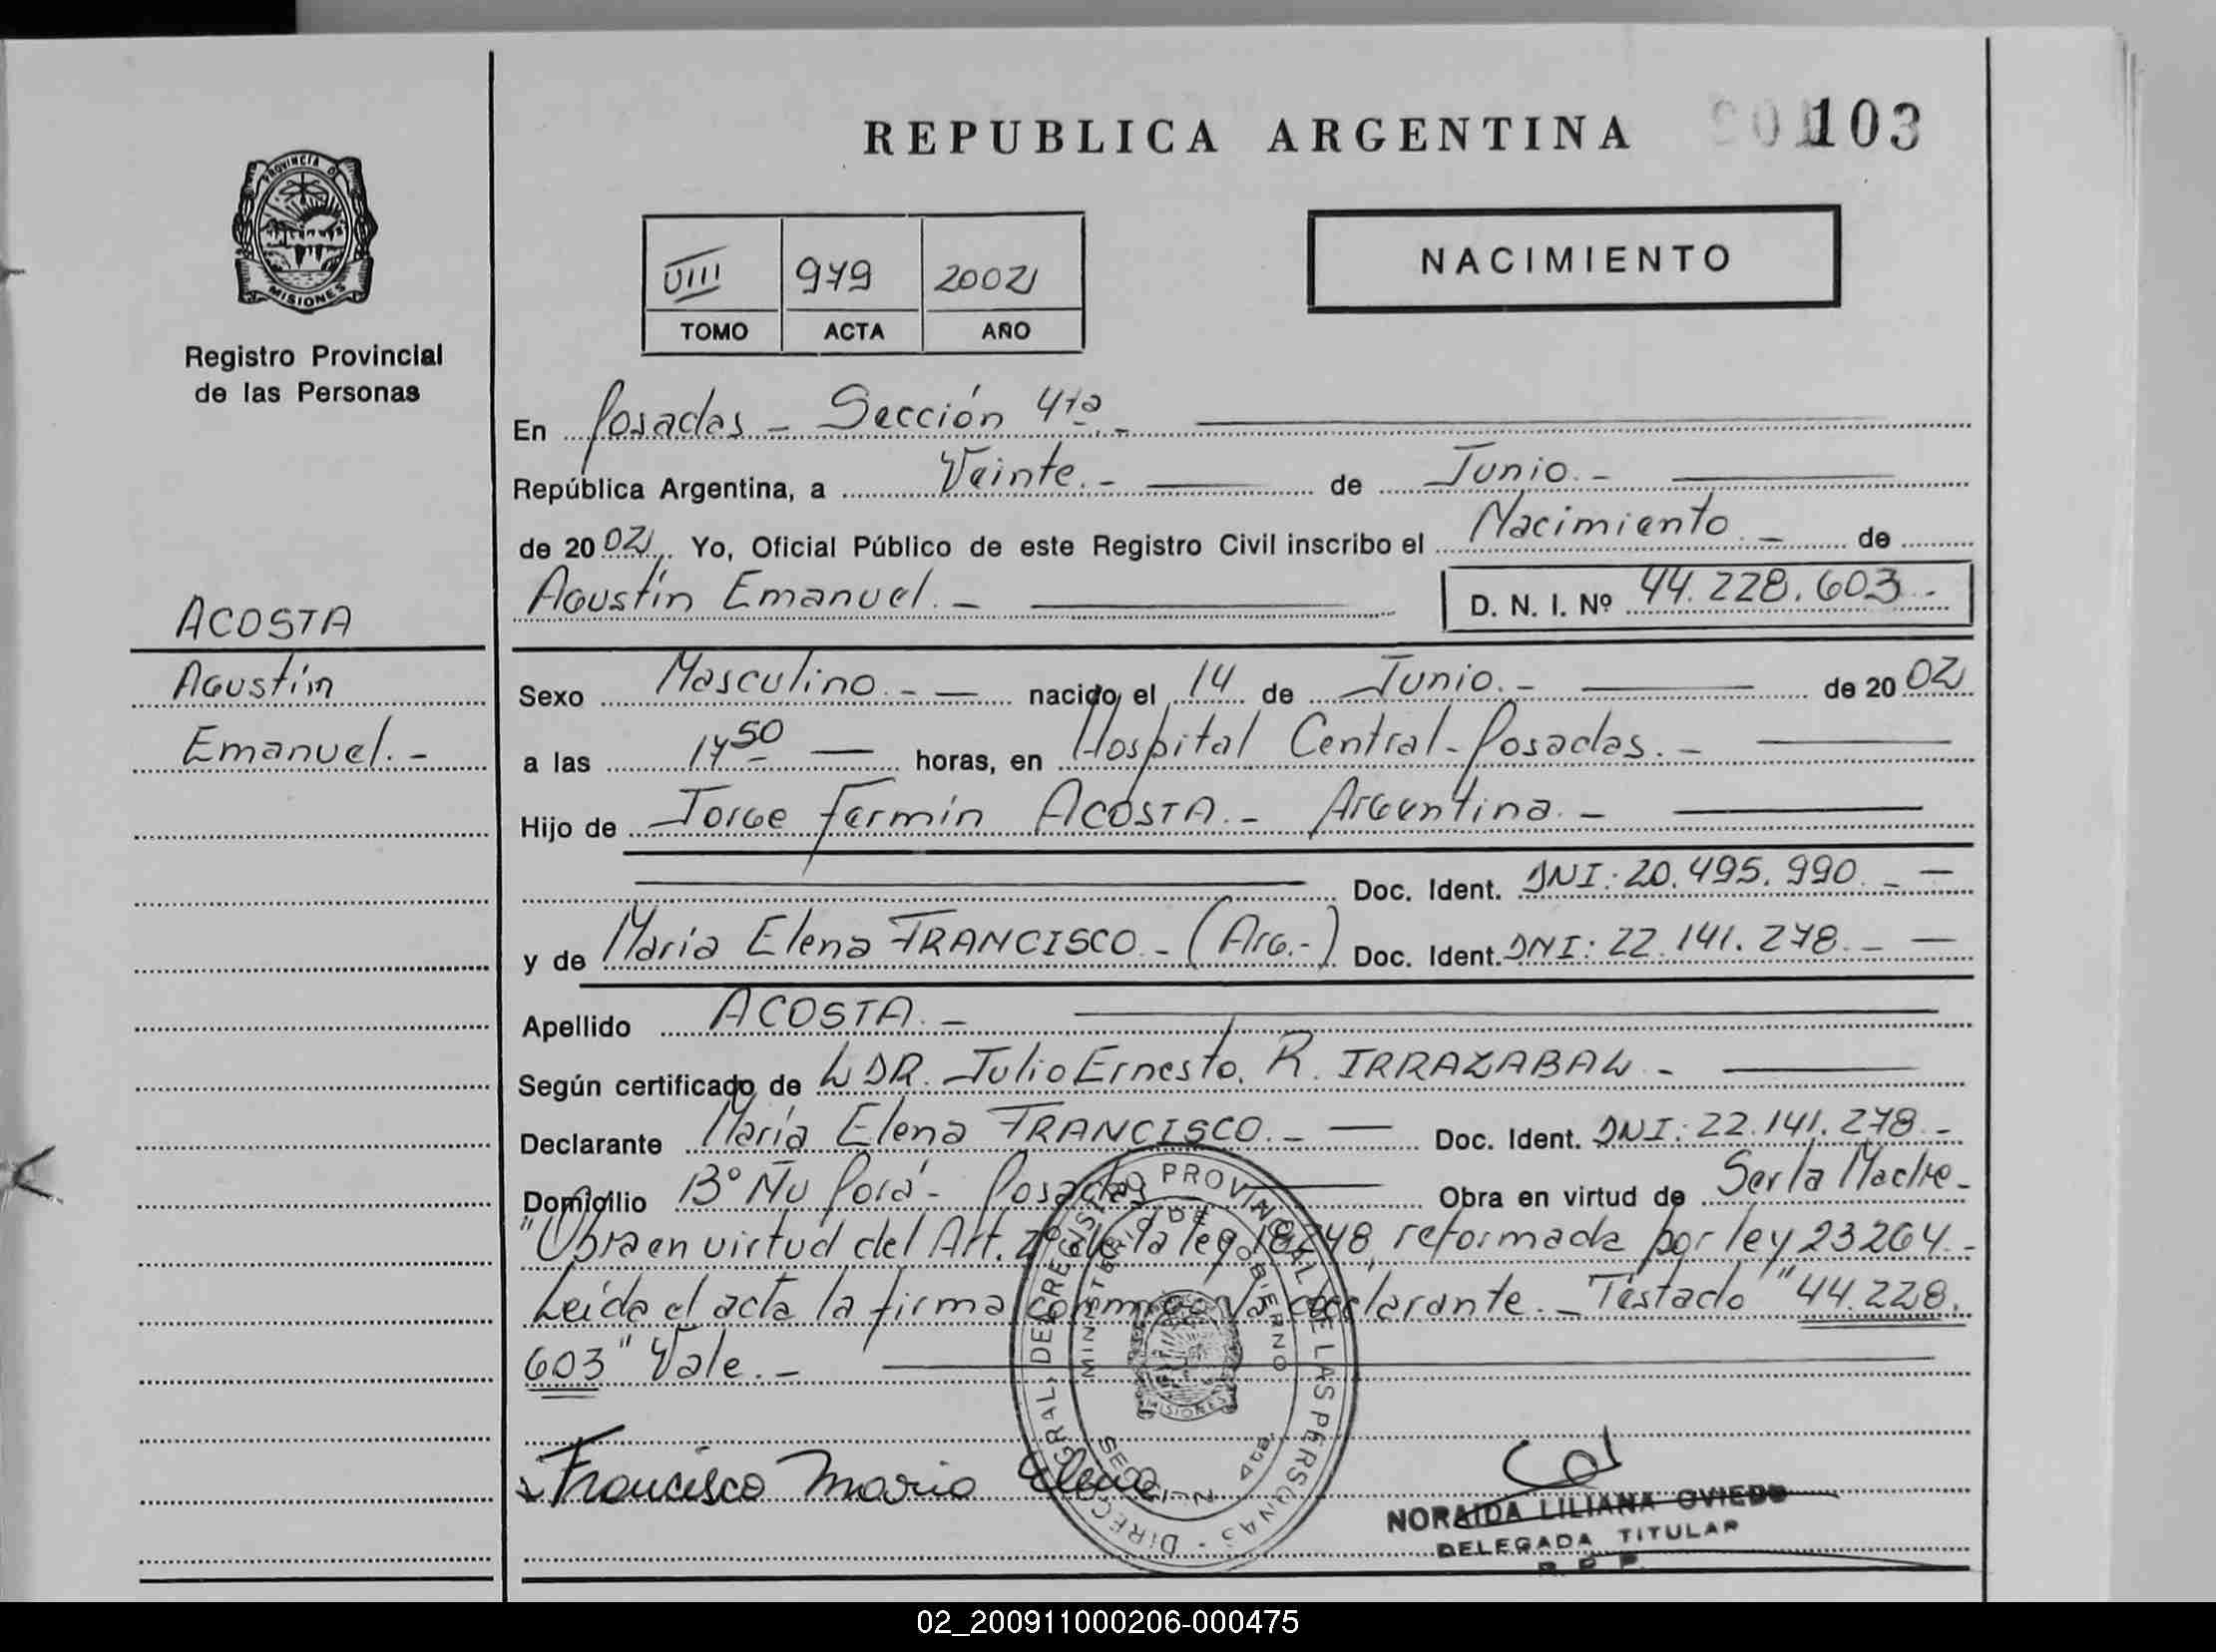 REPUBLICA ARGENTINA
103
PROVINCIA D
MISIONES
Registro Provincial
de las Personas
VIII 979 2002
TOMO ACTA AÑO
NACIMIENTO
En Posadas - Sección 4ta.-
República Argentina, a Veinte.- de Junio.-
de 2002. Yo, Oficial Público de este Registro Civil inscribo el Nacimiento.- de
Agustín Emanuel.- D. N. I. Nº 44.228.603.-
ACOSTA
Agustín
Emanuel.-
Sexo Masculino.- nacido el 14 de Junio.- de 2002
a las 17 50 horas, en Hospital Central - Posadas.-
Hijo de Jorge Fermín ACOSTA.- Argentina.-
Doc. Ident. DNI: 20.495.990.-
y de María Elena FRANCISCO.- (Arg.-) Doc. Ident. DNI: 22.141.278.-
Apellido ACOSTA.-
Según certificado de L DR. Julio Ernesto. R. IRRAZABAL -
Declarante María Elena FRANCISCO.- Doc. Ident. DNI: 22.141.278.-
Domicilio Bº Ñu Porá - Posadas Obra en virtud de Ser la Madre -
"Obra en virtud del Art. 2º de la ley 18248, reformada por ley 23264.-
Leída el acta la firma conmigo la declarante.- Testado "44.228.
603" Vale.-
DIRECC. GRAL. DE REGISTRO PROVINCIAL DE LAS PERSONAS
MINISTERIO DE GOBIERNO
MISIONES
SECCION
Francisco Maria Elena
NORAIDA LILIANA OVIEDO
DELEGADA TITULAR
R. P. P.
02_200911000206-000475